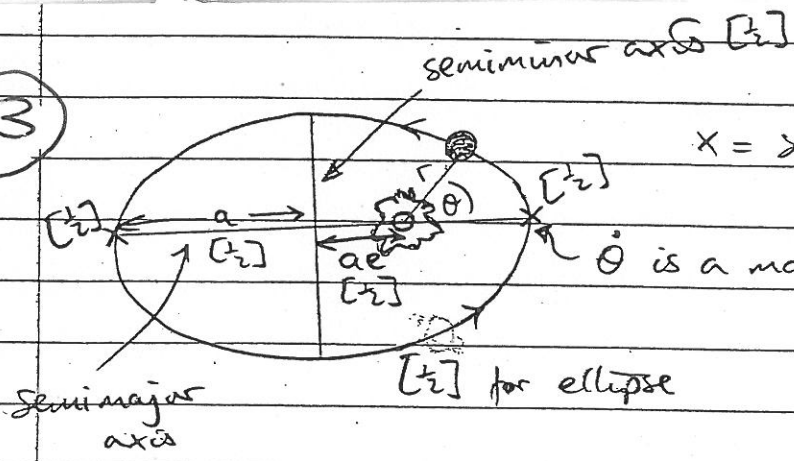 semiminor axis [½]
3
X =
r
θ
[½]
[½]
a
[½]
ae
[½]
θ̇ is a
[½] for ellipse
semimajor
axis